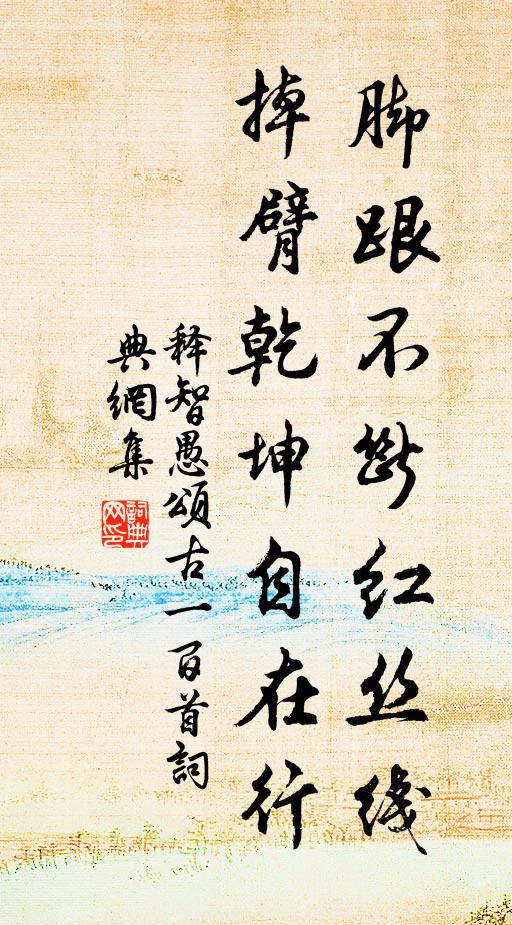 脚跟不断红丝线
掉臂乾坤自在行
释智愚颂古一百首詞
典網集
詞典网印